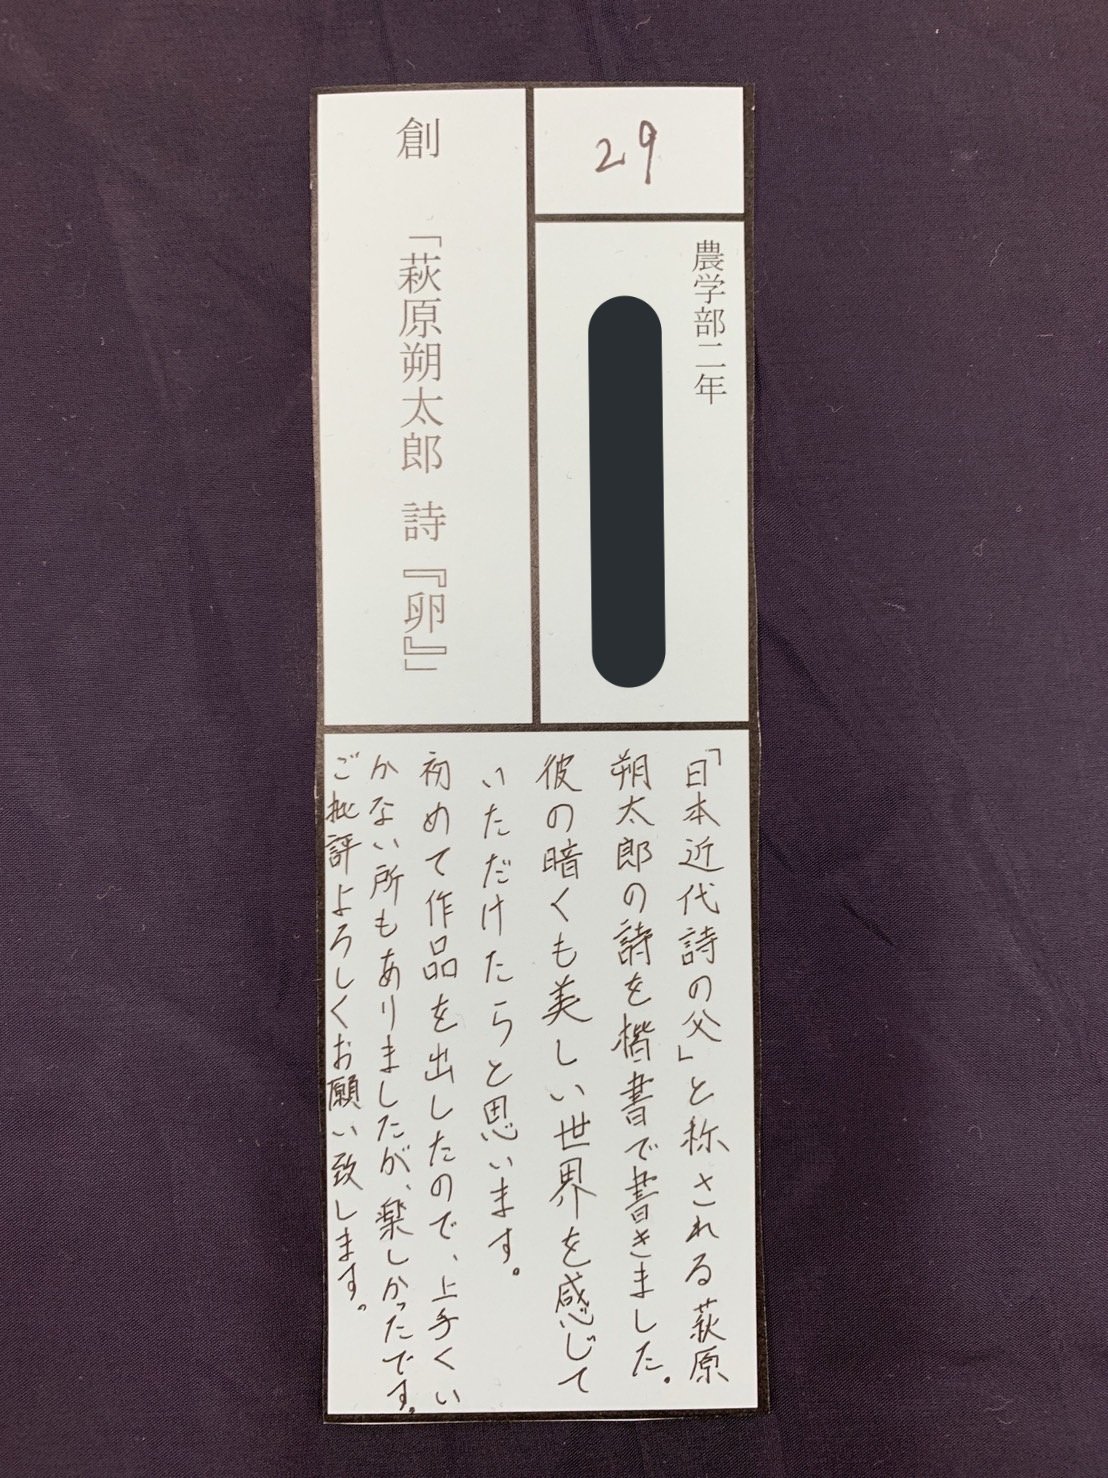 29
農学部二年
創 「萩原朔太郎 詩『卵』」
「日本近代詩の父」と称される萩原
朔太郎の詩を楷書で書きました。
彼の暗くも美しい世界を感じて
いただけたらと思います。
初めて作品を出したので、上手くい
かない所もありましたが、楽しかったです。
ご批評よろしくお願い致します。